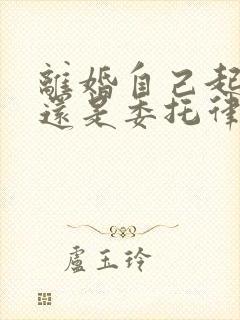 離婚自己起
還是委托律
盧玉玲